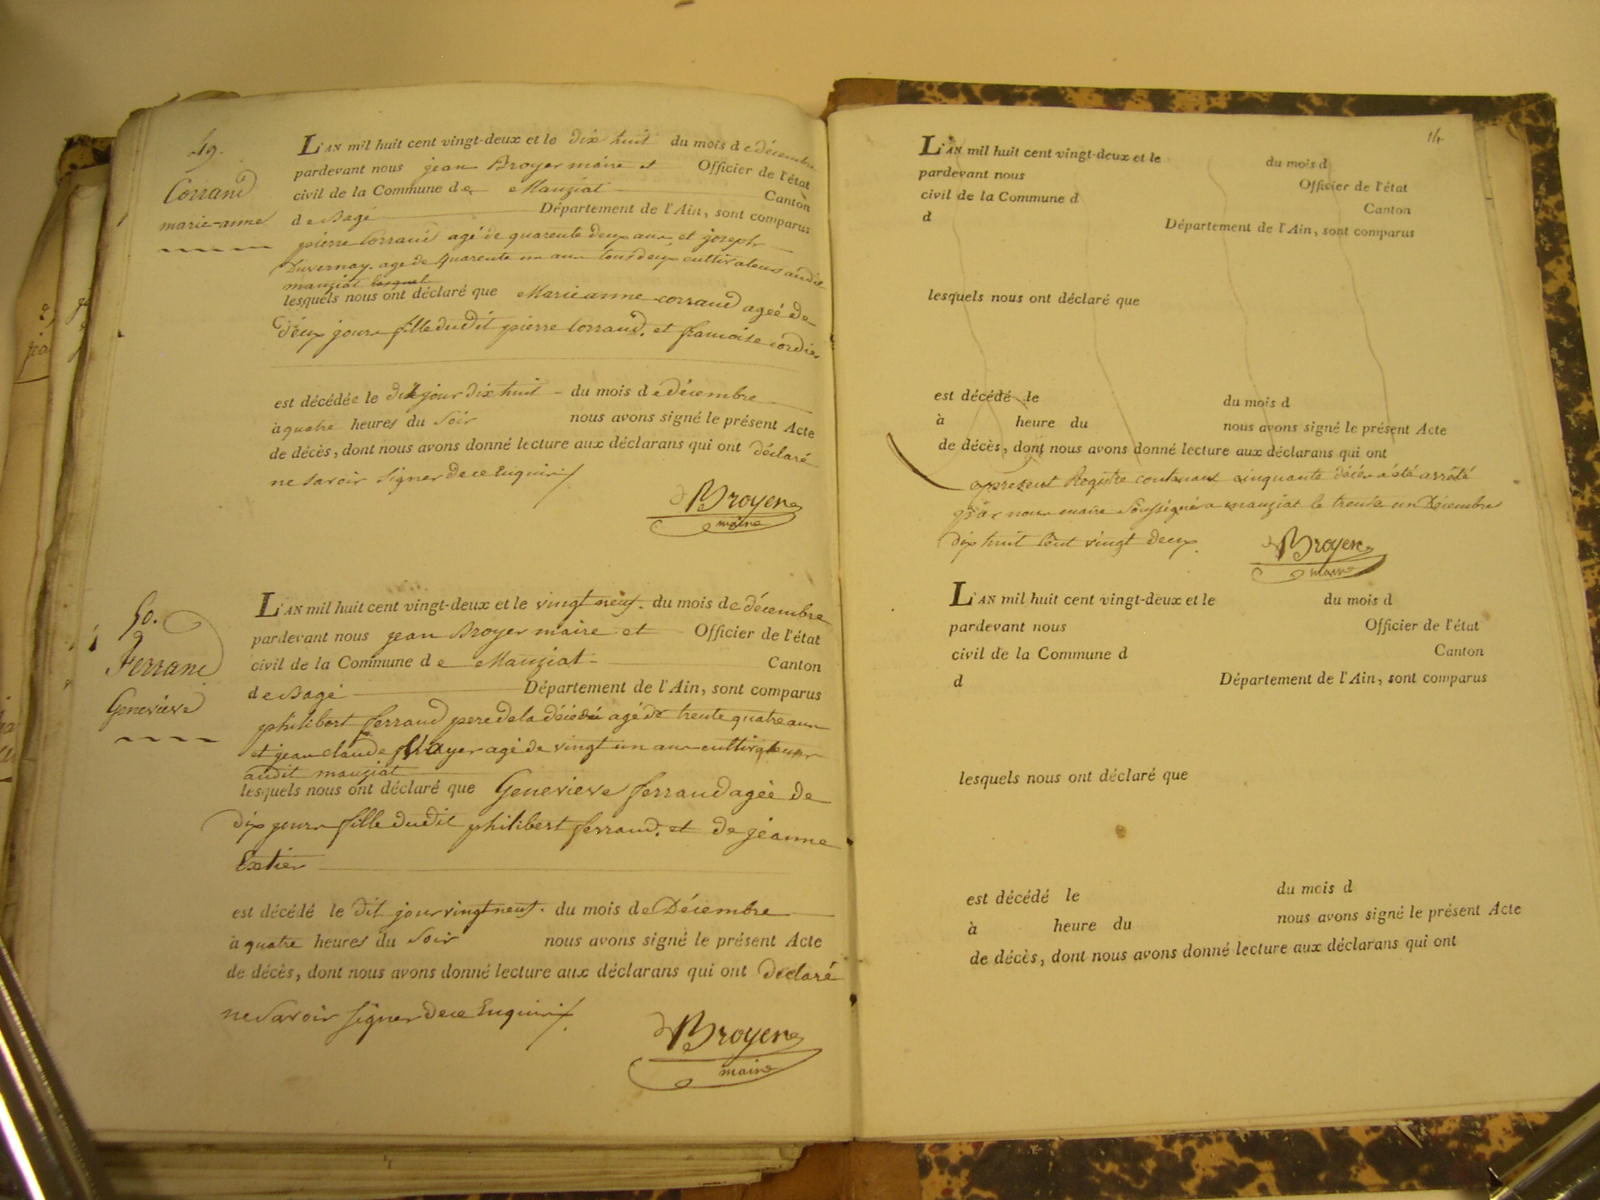 49.
Corrand
marie-anne
L'AN mil huit cent vingt-deux et le dix huit du mois de décembre
pardevant nous jean Broyer maire et Officier de l'état
civil de la Commune de Manziat Canton
de Bagé Département de l'Ain, sont comparus
pierre Corrand agé de quarente deux ans, et joseph
Duvernay. age de quarente un ans tous deux cultivateurs audit
manziat
lesquels nous ont déclaré que Marie anne corrand agée de
deux jours fille dudit pierre Corrand. et francoise cordier
est décédée le dit jour dix huit du mois de décembre
à quatre heures du soir nous avons signé le présent Acte
de décès, dont nous avons donné lecture aux déclarans qui ont déclaré
ne savoir signer de ce Enquis
Broyer
maire
50.
Ferrand
Genevieve
L'AN mil huit cent vingt-deux et le vingt neuf. du mois de décembre
pardevant nous jean Broyer maire et Officier de l'état
civil de la Commune de Manziat Canton
de Bagé Département de l'Ain, sont comparus
philibert ferrand pere de la décédée agé de trente quatre ans
et jean claude agé de vingt un ans cultivateurs
audit manziat
lesquels nous ont déclaré que Genevieve ferrand agée de
dix jours fille dudit philibert ferrand. et de jeanne
Extier
est décédé le dit jour vingt neuf. du mois de Décembre
à quatre heures du Soir nous avons signé le présent Acte
de décès, dont nous avons donné lecture aux déclarans qui ont déclaré
ne Savoir signer de ce Enquis
Broyer
maire
14
L'AN mil huit cent vingt-deux et le du mois d
pardevant nous Officier de l'état
civil de la Commune d Canton
d Département de l'Ain, sont comparus
lesquels nous ont déclaré que
est décédé le du mois d
à heure du nous avons signé le présent Acte
de décès, dont nous avons donné lecture aux déclarans qui ont
present Registre contenant cinquante décès a été arrêté
par nous maire Soussigné a manziat le trente un Décembre
dix huit Cent vingt deux.
Broyer
maire
L'AN mil huit cent vingt-deux et le du mois d
pardevant nous Officier de l'état
civil de la Commune d Canton
d Département de l'Ain, sont comparus
lesquels nous ont déclaré que
est décédé le du mois d
à heure du nous avons signé le présent Acte
de décès, dont nous avons donné lecture aux déclarans qui ont